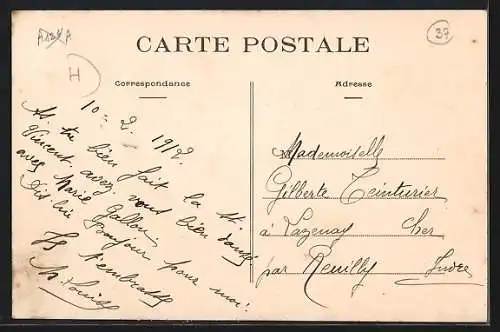 37
H
CARTE POSTALE
Correspondance
Adresse
10 = 2. 1912.
As tu bien fait la St
Vincent avez vous bien dansé
avec Marie Gallon,
Dis lui bonjour pour moi.
Je t'embrasse
M. Louise
Mademoiselle
Gilberte Teinturier
à Lazenay Cher
par Reuilly Indre